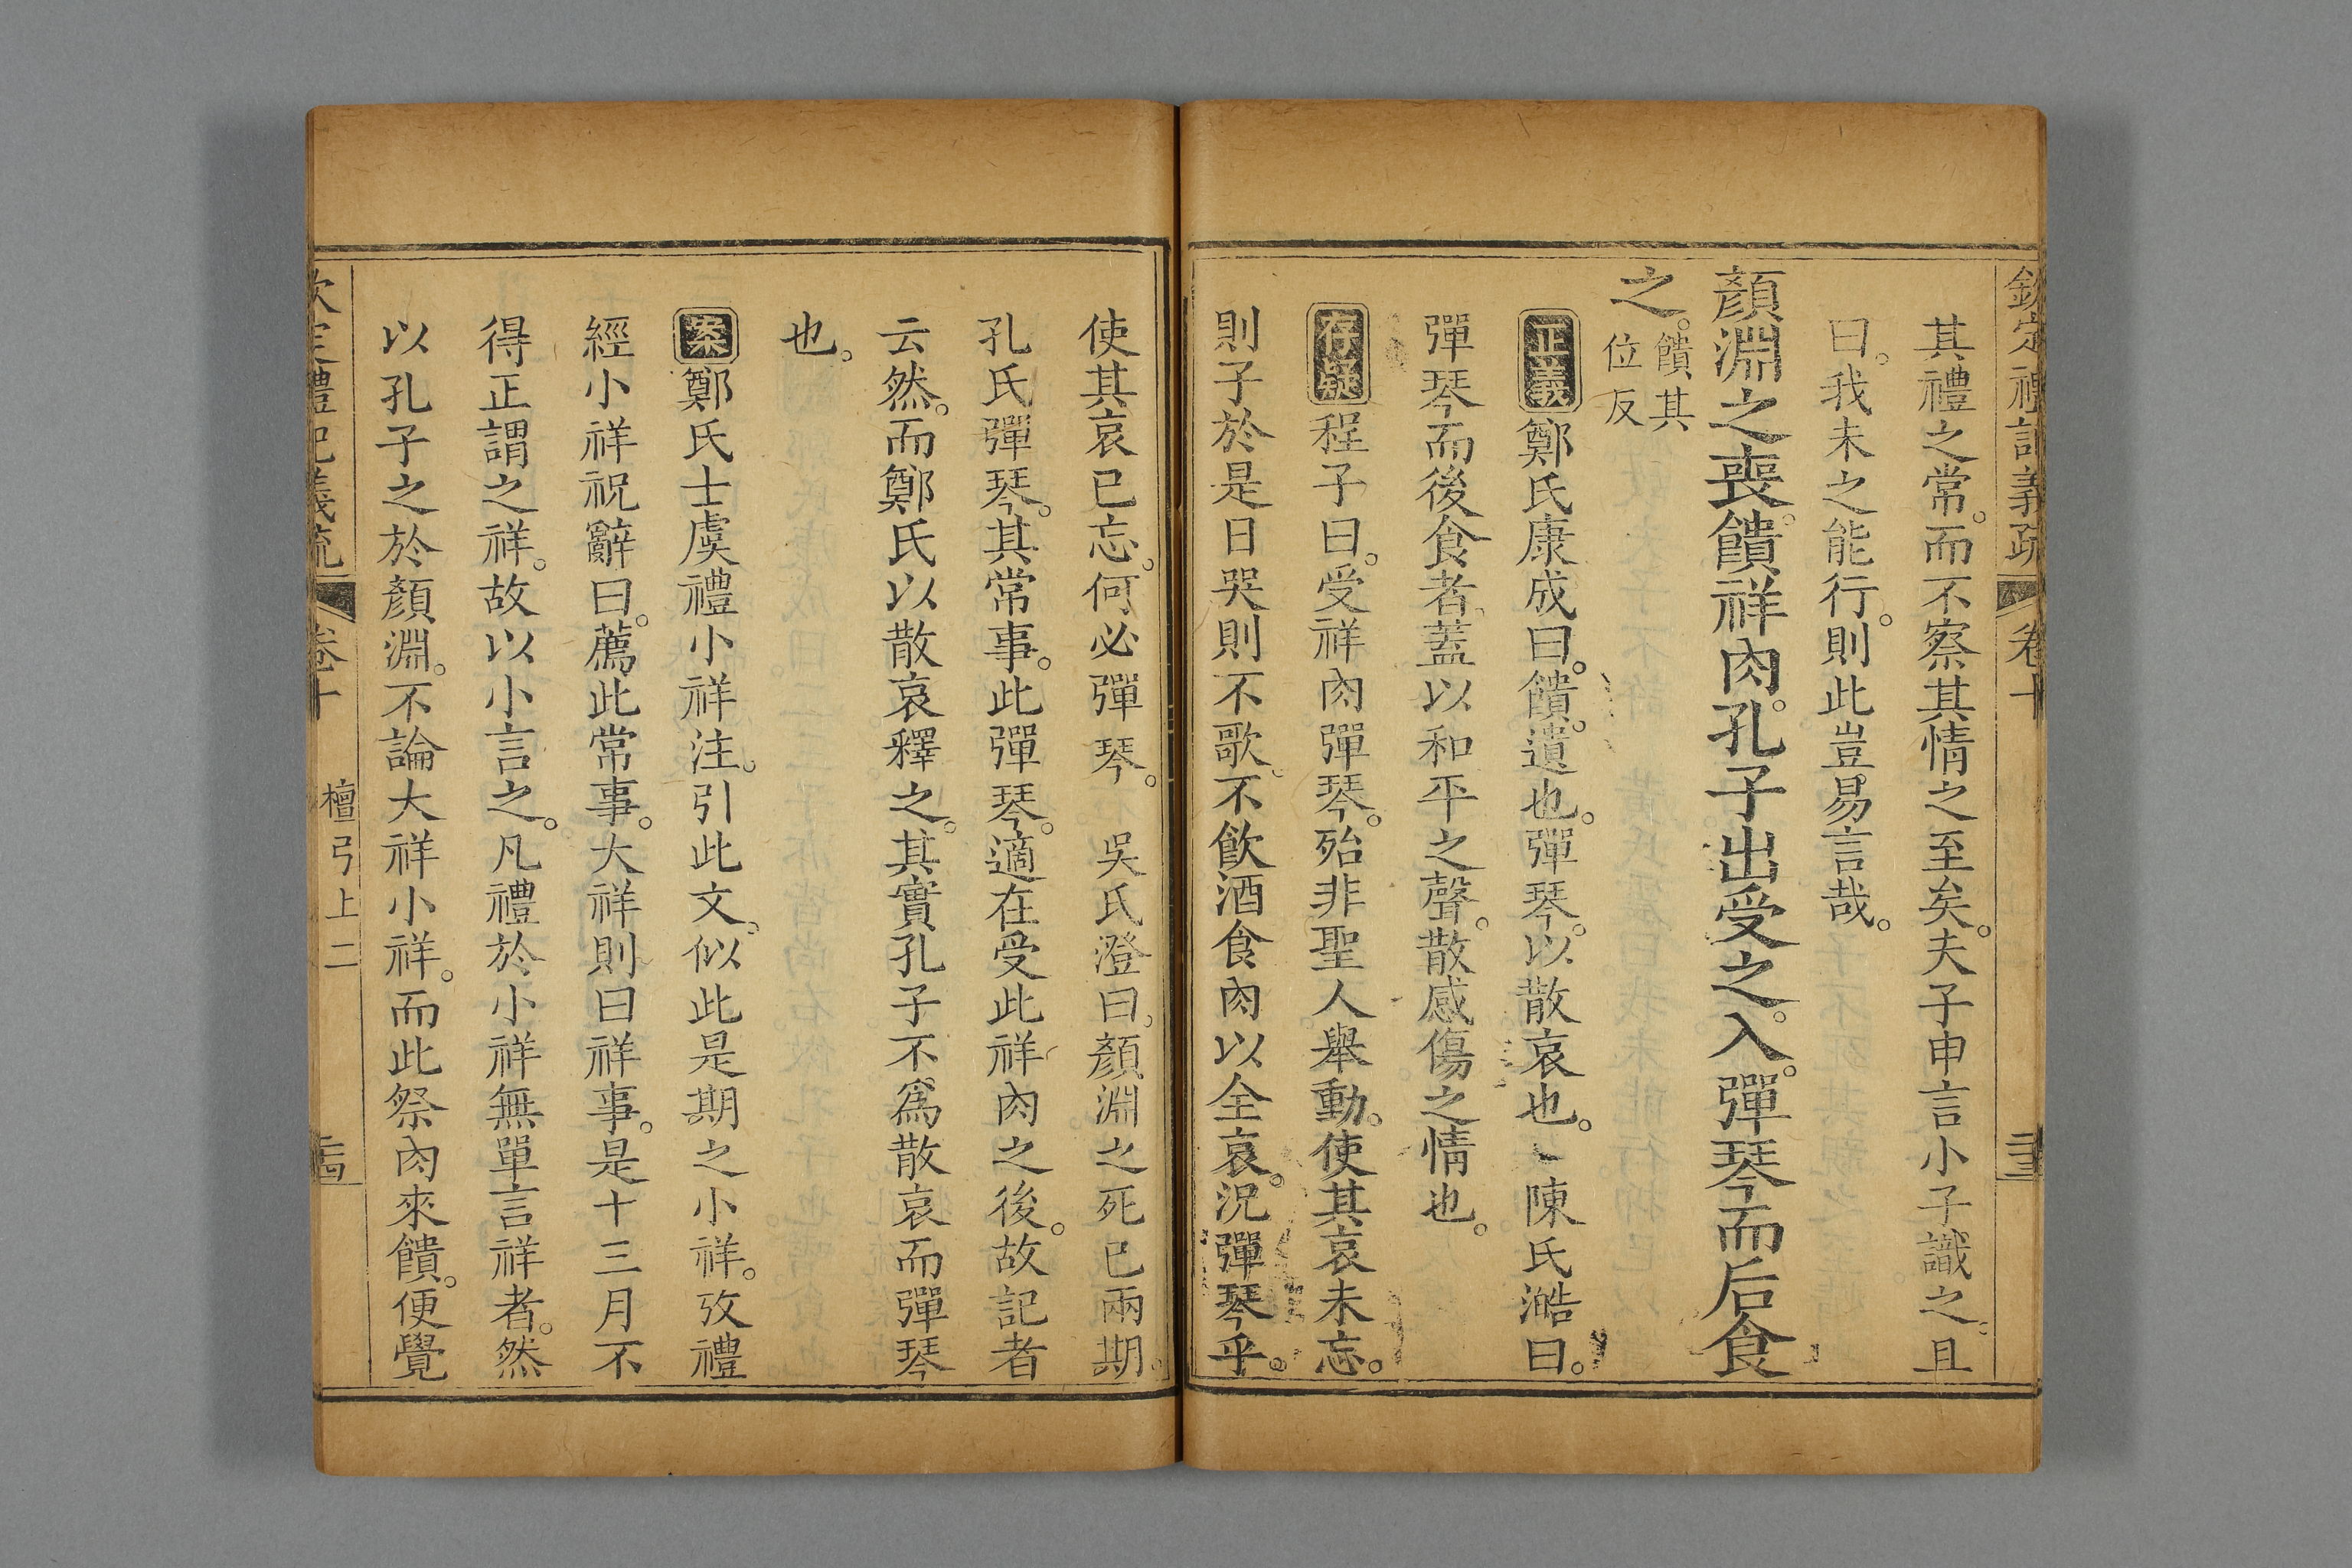 欽定禮記義疏 卷十
其禮之常。而不察其情之至矣。夫子申言小子識之。且
曰。我未之能行。則此豈易言哉。
顏淵之喪。饋祥肉。孔子出受之。入。彈琴而后食
之。饋其
位反
正義鄭氏康成曰。饋。遺也。彈琴。以散哀也。 陳氏澔曰。
彈琴而後食者。蓋以和平之聲。散感傷之情也。
存疑程子曰。受祥肉彈琴。殆非聖人舉動。使其哀未忘。
則子於是日哭則不歌。不飲酒食肉以全哀。況彈琴乎。
使其哀已忘。何必彈琴。 吳氏澄曰。顏淵之死已兩期。
孔氏彈琴。其常事。此彈琴。適在受此祥肉之後。故記者
云然。而鄭氏以散哀釋之。其實孔子不爲散哀而彈琴
也。
案鄭氏士虞禮小祥注。引此文。似此是期之小祥。攷禮
經小祥祝辭曰。薦此常事。大祥則曰祥事。是十三月不
得正謂之祥。故以小言之。凡禮於小祥無單言祥者。然
以孔子之於顏淵。不論大祥小祥。而此祭肉來饋。便覺
欽定禮記義疏 卷十 檀弓上二